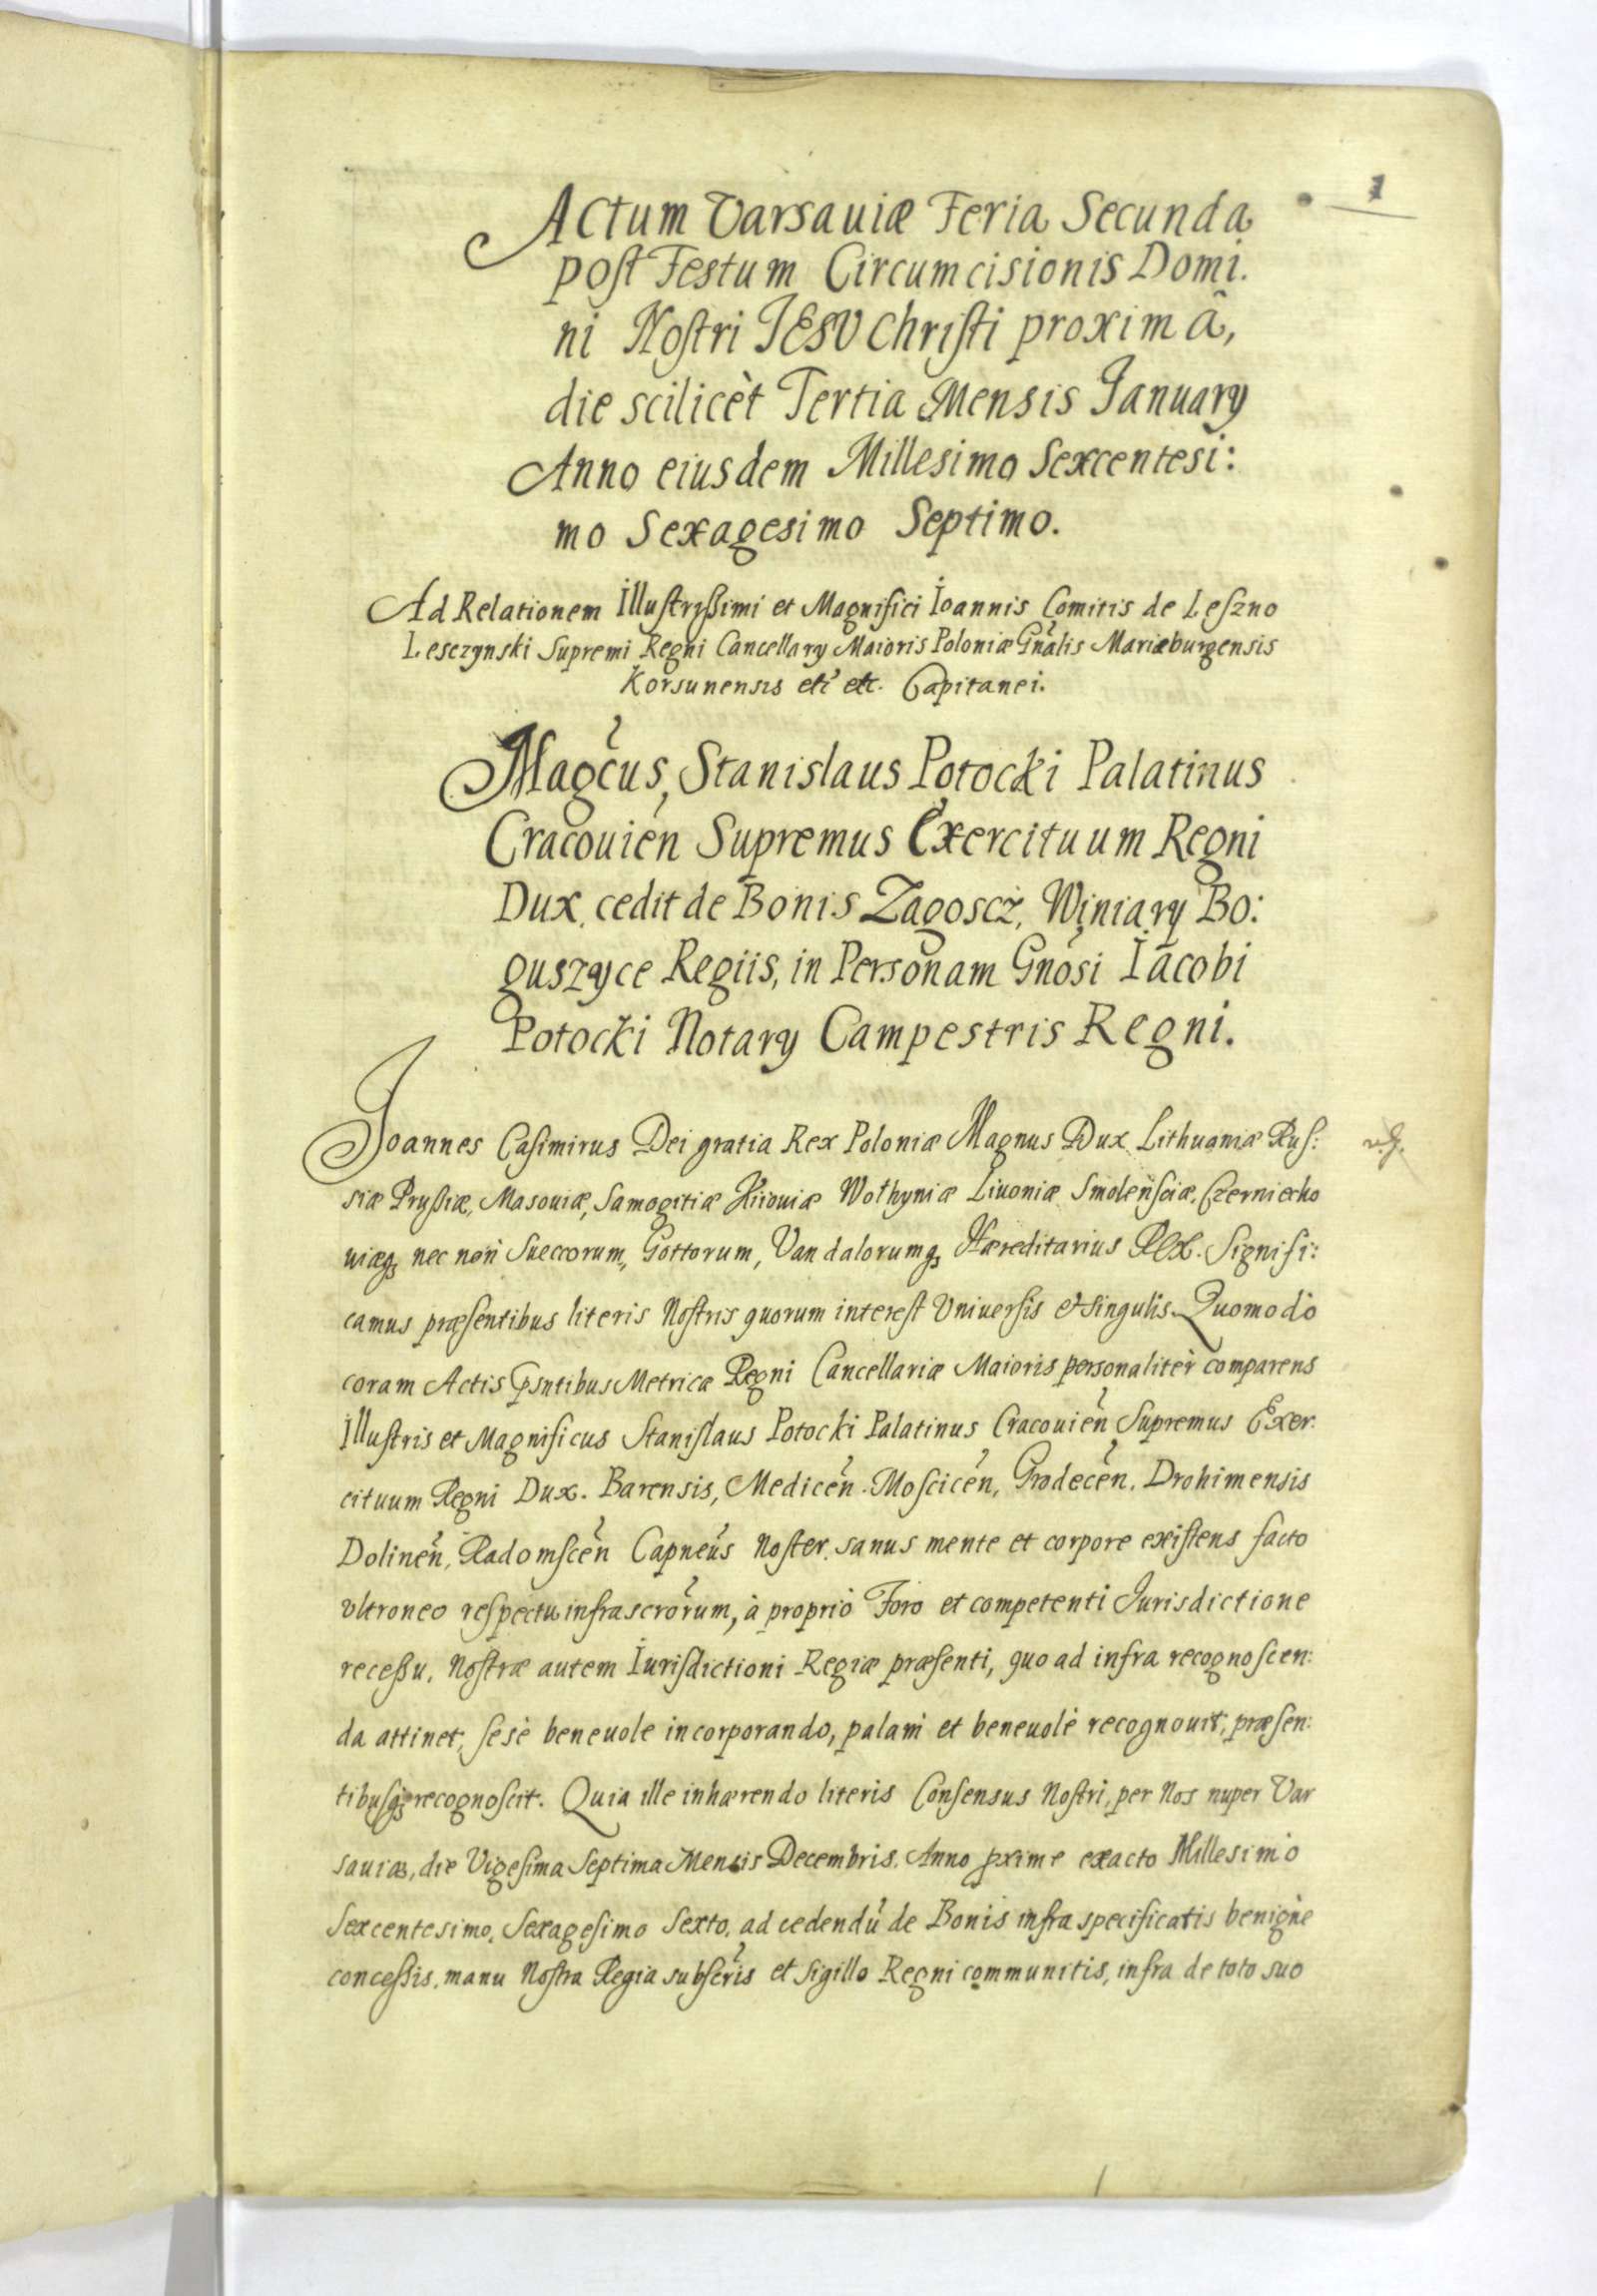 1
Actum Varsauiæ Feria Secunda
post Festum Circumcisionis Domi.
ni Nostri JESV Christi proximâ,
die scilicèt Tertia Mensis January
Anno eiusdem Millesimo Sexcentesi:
mo Sexagesimo Septimo.
Ad Relationem Illustryßimi et Magnifici Ioannis Comitis de Leszno
Lesczynski Supremi Regni Cancellary Maioris Poloniæ Gnãlis Mariæburgensis
Korsunensis etc etc. Capitanei.
Magcus, Stanislaus Potocki Palatinus
Cracouien Supremus Exercituum Regni
Dux, cedit de Bonis Zagoscz, Winiary Bo:
guszyce Regiis, in Personam Gnosi Iacobi
Potocki Notary Campestris Regni.
Joannes Casimirus Dei gratia Rex Poloniæ Magnus Dux Lithuaniæ Rus:
siæ Prußiæ, Masouiæ, Samogitiæ Kiiouiæ Wołhyniæ Liuoniæ Smolensciæ, Czerniecho
uiæq, nec non Sueccorum, Gottorum, Vandalorumq, Hæreditarius Rex. Signifi:
camus præsentibus literis Nostris quorum interest Vniuersis et singulis. Quomodo
coram Actis psntibus Metricæ Regni Cancellariæ Maioris personalitèr comparens
Illustris et Magnificus Stanislaus Potocki Palatinus Cracouien Supremus Exer:
cituum Regni Dux. Barensis, Medicen. Moscicen, Grodecen. Drohimensis
Dolinen, Radomscen Capneus Noster. sanus mente et corpore existens facto
vltroneo respectu infrascrorum, à proprio Foro et competenti Jurisdictione
receßu, Nostræ autem Iurisdictioni Regiæ præsenti, quo ad infra recognoscen:
da attinet, sesè beneuole incorporando, palam et beneuolè recognouit, præsen:
tibusq recognoscit. Quia ille inhærendo literis Consensus Nostri, per Nos nuper Var
sauiæ, die Vigesima Septima Mensis Decembris. Anno pxime exacto Millesimo
Sexcentesimo, Sexagesimo Sexto, ad cedendu de Bonis infra specificatis benignè
conceßis, manu Nostra Regia subscris et sigillo Regni communitis, infra de toto suo